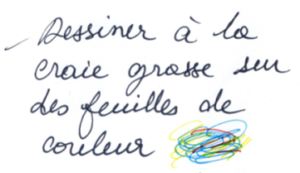 - Dessiner à la
craie grasse sur
des feuilles de
couleur